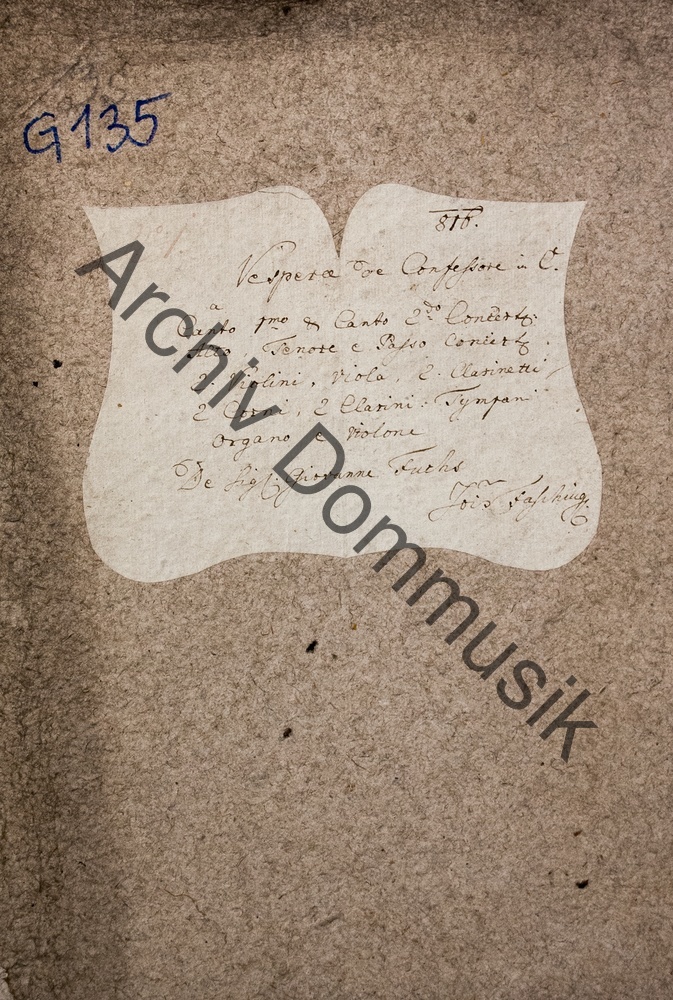 G135
816.
Vesperæ De Confessore in C.
a
Canto 1mo & Canto 2do Concert:
Alto Tenore e Basso Concert:
2. Violini, Viola, 2. Clarinetti
2 Corni, 2 Clarini: Tympani
Organo e Violone
De Sigl: Giovanne Fuchs
Fasching.
Archiv Dommusik